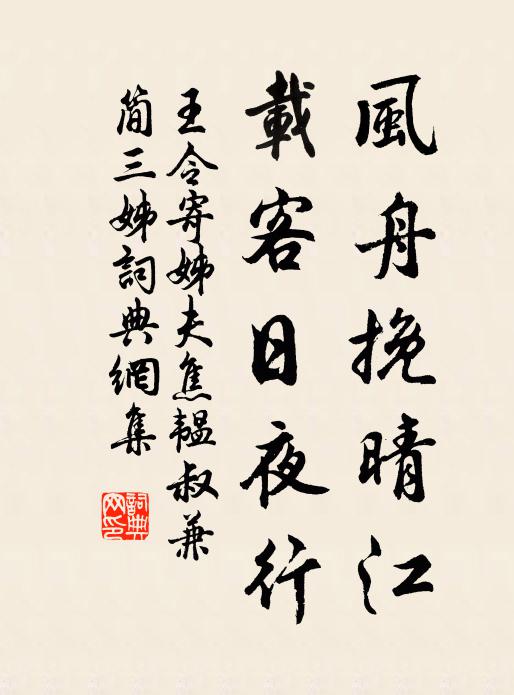 風舟挽晴江
載客日夜行
王令寄姊夫焦韞叔兼
簡三姊詞典網集
詞典
網印